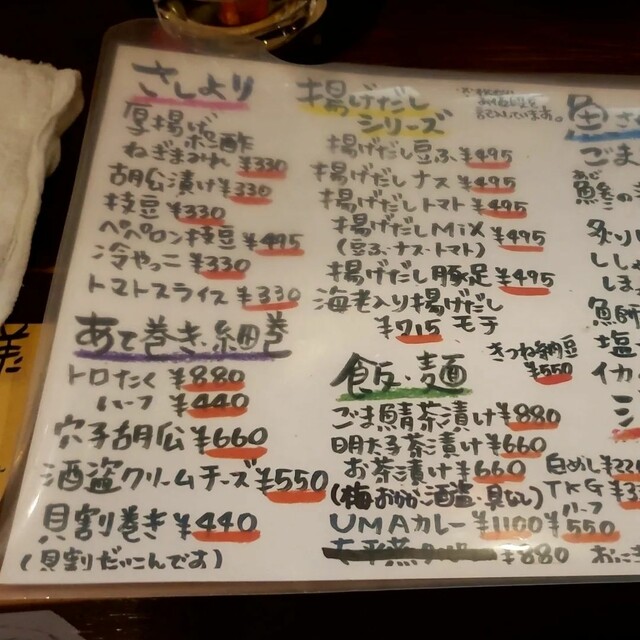 さしより
厚揚げ
ポン酢
ねぎまみれ ¥330
胡瓜漬け ¥330
枝豆 ¥330
ペペロン枝豆 ¥495
冷やっこ ¥330
トマトスライス ¥330
あて巻き・細巻
トロたく ¥880
ハーフ ¥440
穴子胡瓜 ¥660
酒盗クリームチーズ ¥550
貝割巻き ¥440
(貝割だいこんです)
揚げだし
シリーズ
揚げだし豆ふ ¥495
揚げだしナス ¥495
揚げだしトマト ¥495
揚げだしMiX
(豆ふ・ナス・トマト) ¥495
揚げだし豚足 ¥495
海老入り揚げだし
¥715 モチ
きつね納豆
¥550
飯・麺
ごま鯖茶漬け ¥880
明太子茶漬け ¥660
お茶漬け ¥660
(梅・おかか・酒盗・具なし)
UMAカレー ¥1100 ハーフ ¥550
¥880
白めし ¥220
TKG
おにご
魚
ごま
鯵
炙り
しし
しま
魚
塩
イカ